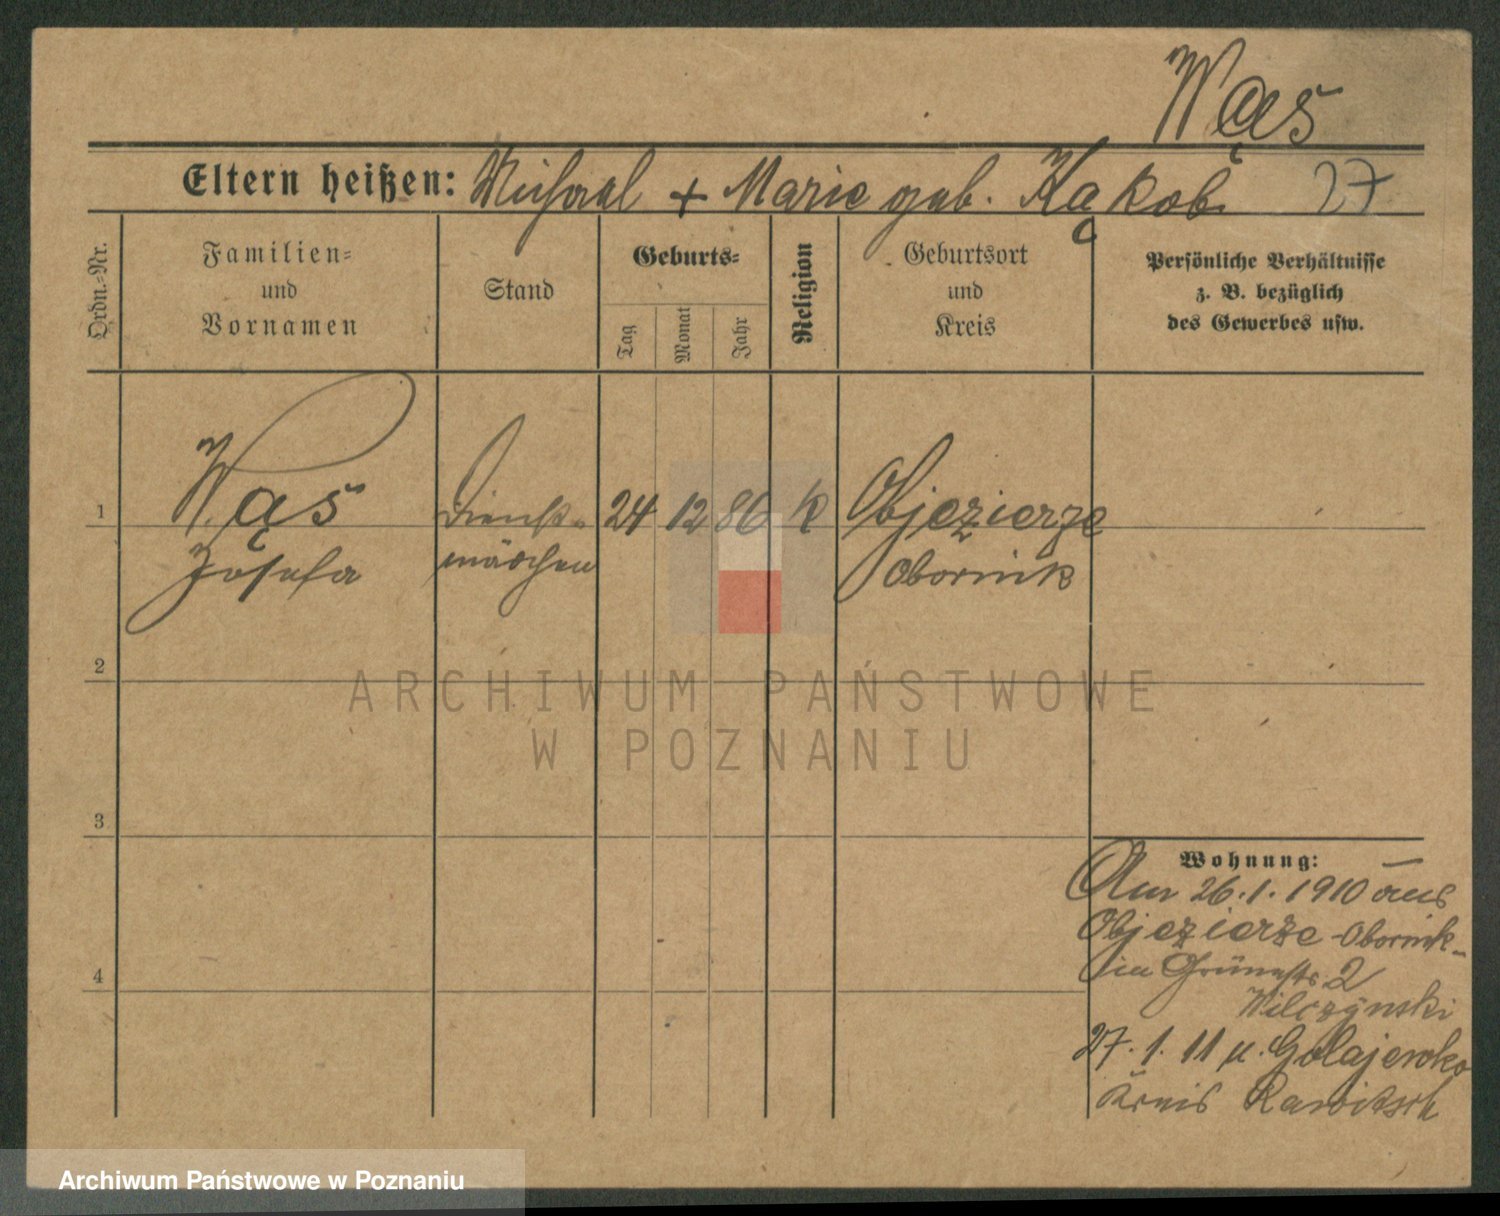 Wąs
Eltern heißen: Michael + Marie geb. Kąkob. 27
Ordn.-Nr.
Familien=
und
Vornamen
Stand
Geburts=
Tag
Monat
Jahr
Religion
Geburtsort
und
Kreis
Persönliche Verhältnisse
z. B. bezüglich
des Gewerbes usw.
1 Wąs Dienst= 24 12 86 K Objezierze
Josefa mädchen Obornik
2
ARCHIWUM PAŃSTWOWE
W POZNANIU
3
Wohnung:
Am 26.1.1910 aus
Objezierze - Obornik -
in Grünestr. 2
Wilczynski
4
27.1.11 n. Golajewko
Kreis Rawitsch
Archiwum Państwowe w Poznaniu